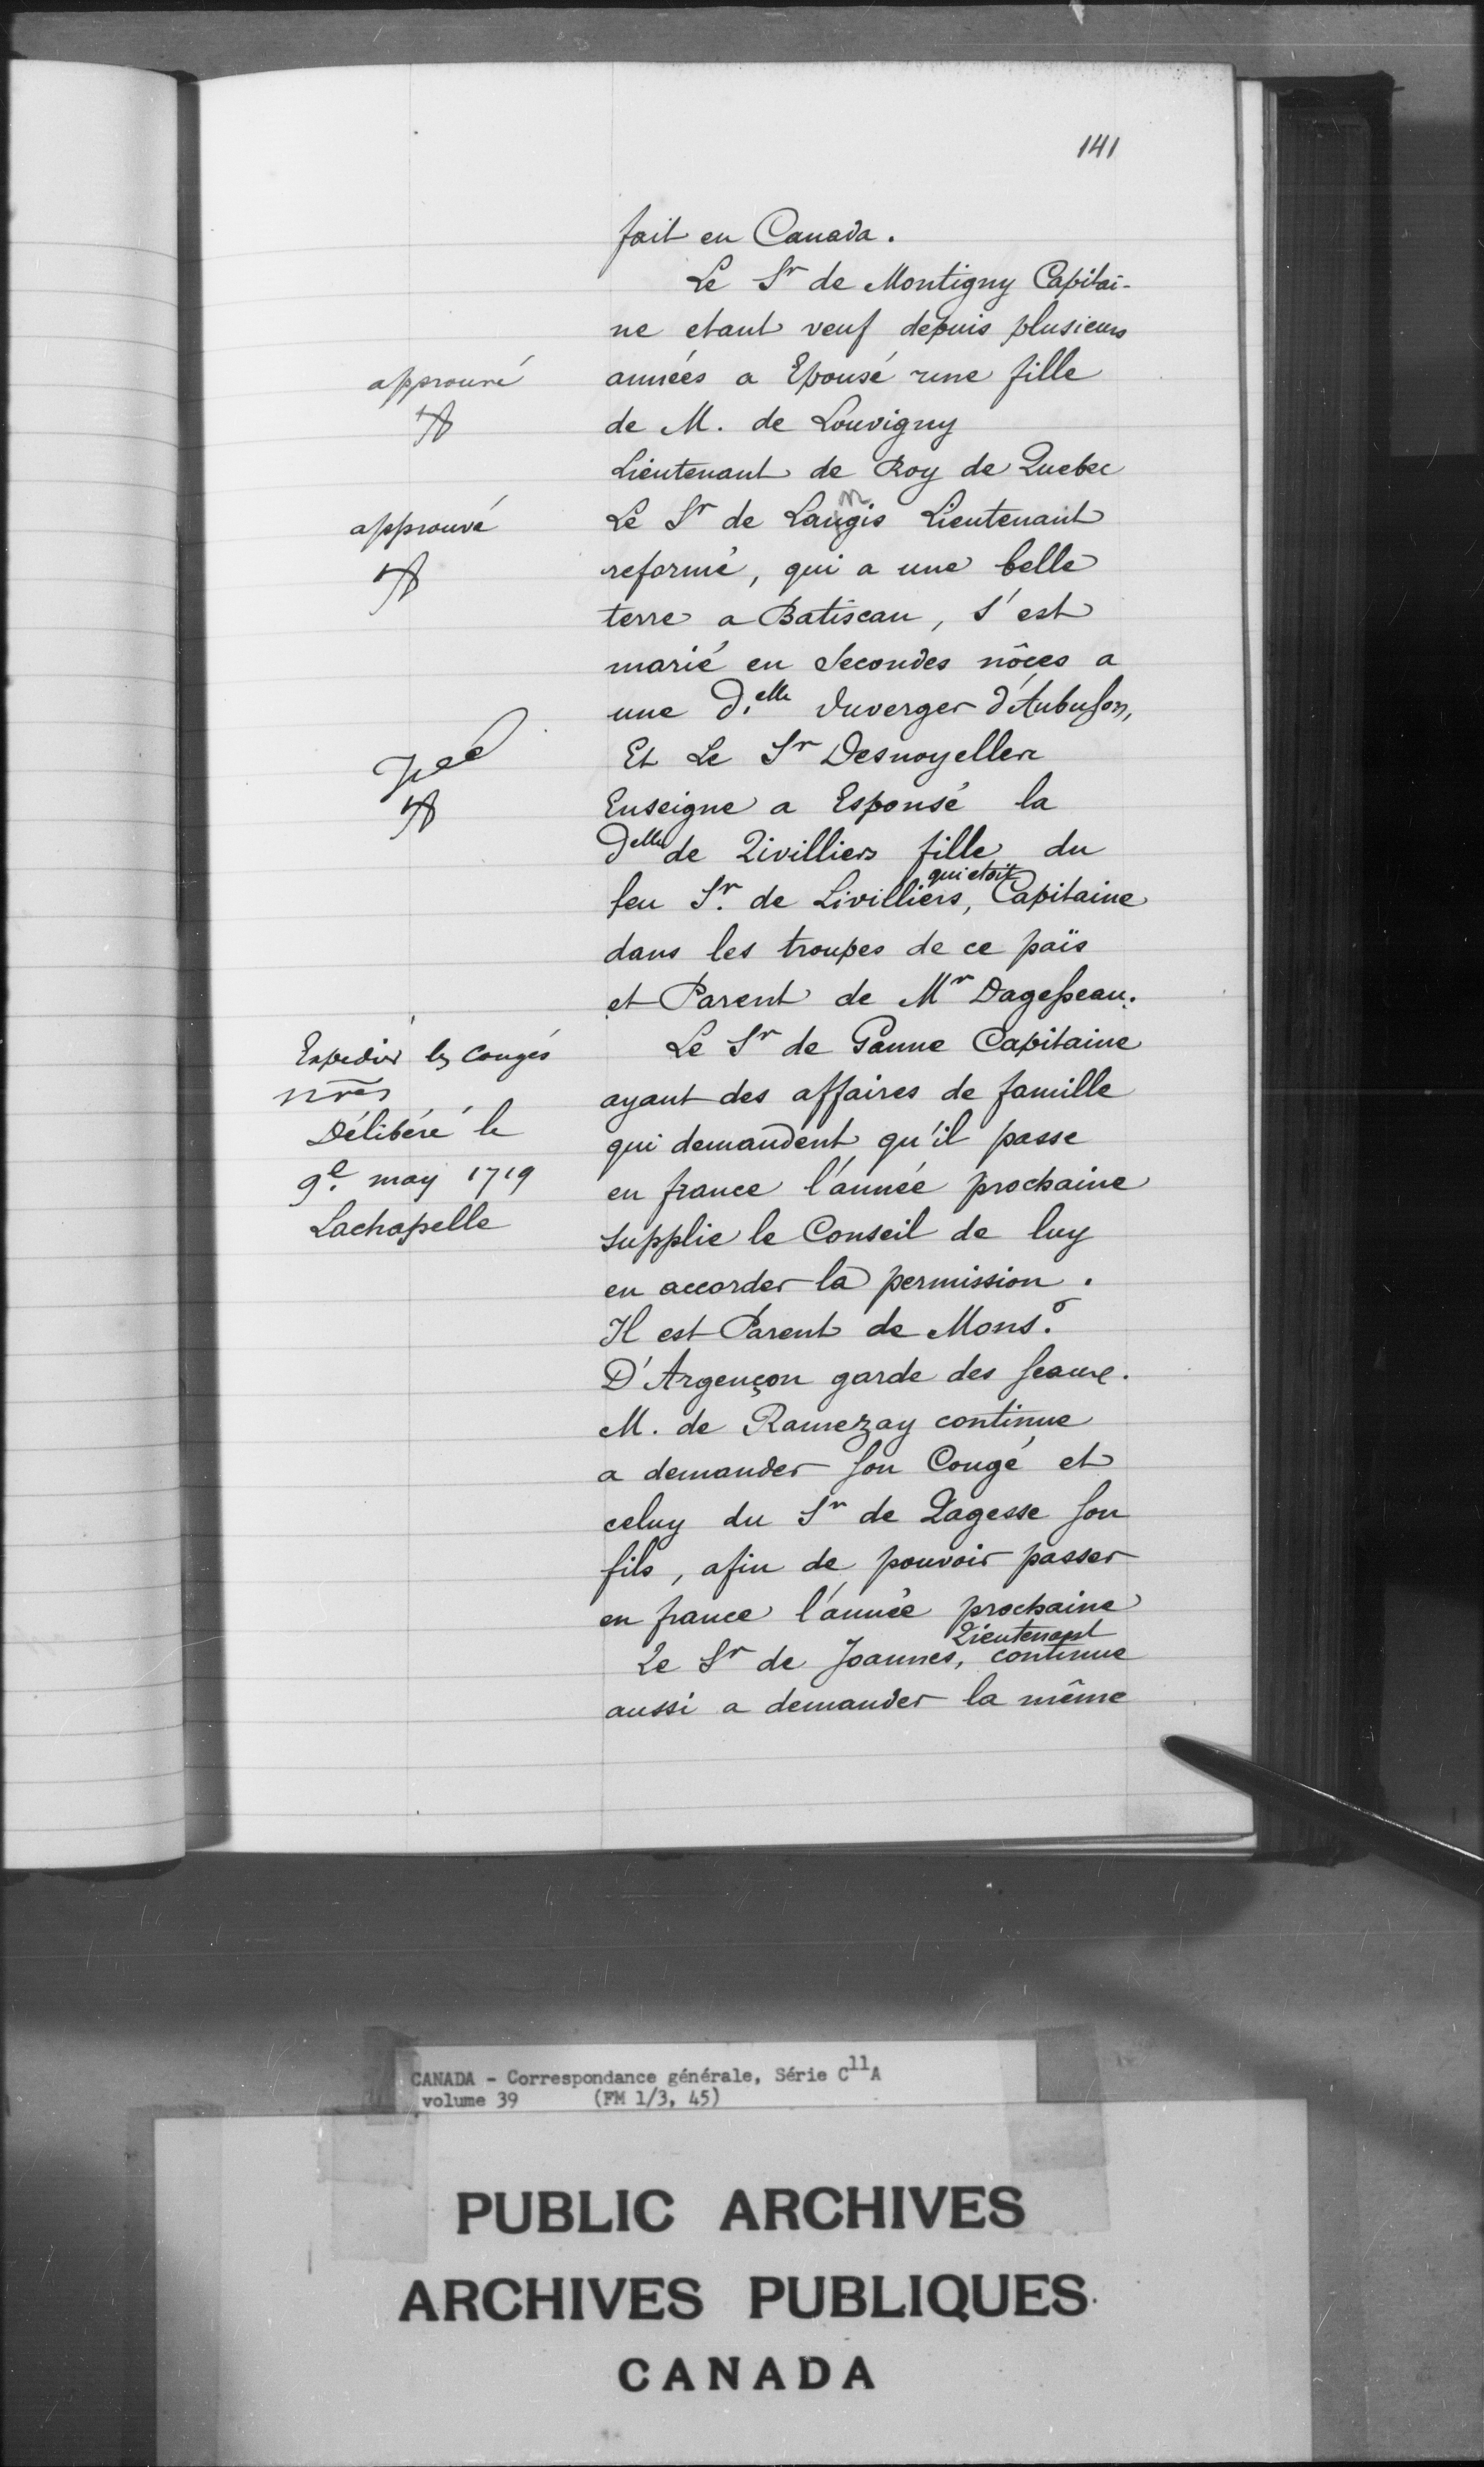 141
fait en Canada.
Le Sr de Montigny Capitai-
ne etant veuf depuis plusieurs
années a Epousé une fille
de M. de Louvigny
Lieutenant de Roy de Quebec
approuvé
Le Sr de Langis Lieutenant
reformé, qui a une belle
terre a Batiscan, s'est
marié en Secondes nôces a
une D.elle Duverger d'Aubusson,
approuvé
Et Le Sr Desnoyeller
Enseigne a Espousé la
Delle de Livilliers fille du
feu Sr. de Livilliers, qui etoit Capitaine
dans les troupes de ce païs
et Parent de Mr Dagesseau.
Le Sr de Ganne Capitaine
ayant des affaires de famille
qui demandent qu'il passe
en france l'année prochaine
supplie le Conseil de luy
en accorder la permission.
Il est Parent de Mons.r
D'Argençon garde des seaux.
Expedier les congés
Délibéré le
9e. may 1719
Lachapelle
M. de Ramezay continue
a demander son Congé et
celuy du Sr de Lagesse son
fils, afin de pouvoir passer
en france l'année prochaine
Le Sr de Joannes, Lieutenant continue
aussi a demander la même
CANADA - Correspondance générale, Série C11A
volume 39 (FM 1/3, 45)
PUBLIC ARCHIVES
ARCHIVES PUBLIQUES
CANADA